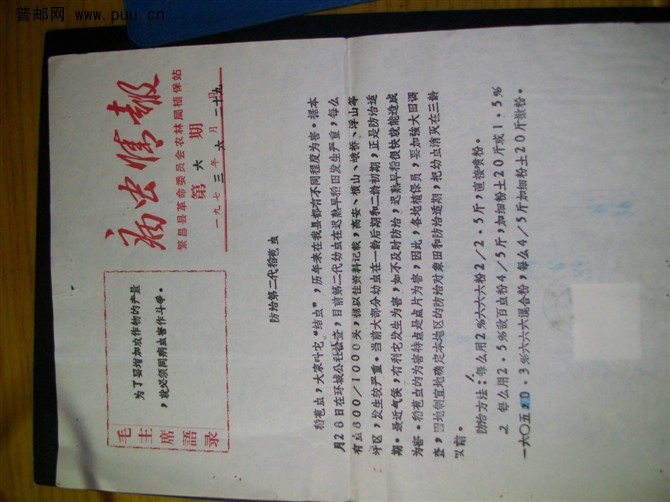 普邮网 www.puu.cn
毛主席語录
为了要增加农作物的产量
，就必须同病虫害作斗争。
病虫情报
繁昌县革命委员会农林局植保站
第六期
一九七三年六月二十九日
防治第二代稻苞虫
稻苞虫，大家叫它“结虫”，历年来在我县都有不同程度为害。据本
月26日在环城公社检查，目前第二代幼虫在迟熟早稻田发生严重，每么
有虫800/1000头，据以往资料记载，高安、横山、峨桥、浮山等
圩区，发生较严重。当前大部分幼虫在一龄后期和二龄初期，正是防治适
期。最近气侯，有利它发生为害，如不及时防治，迟熟早稻很快就能造成
为害。稻苞虫的为害特点是点片为害，因此，各地植保员，要加强大田调
查，因地制宜地确定本地区的防治对象田和防治适期，把幼虫消灭在三龄
以前。
防治方法：每么用2%六六六粉2/2.5斤，直接喷粉。
2 每么用2.5%敌百虫粉4/5斤，加细粉土20斤或1.5%
一六〇五，0.3%六六六混合粉，每么4/5斤加细粉土20斤撒粉。